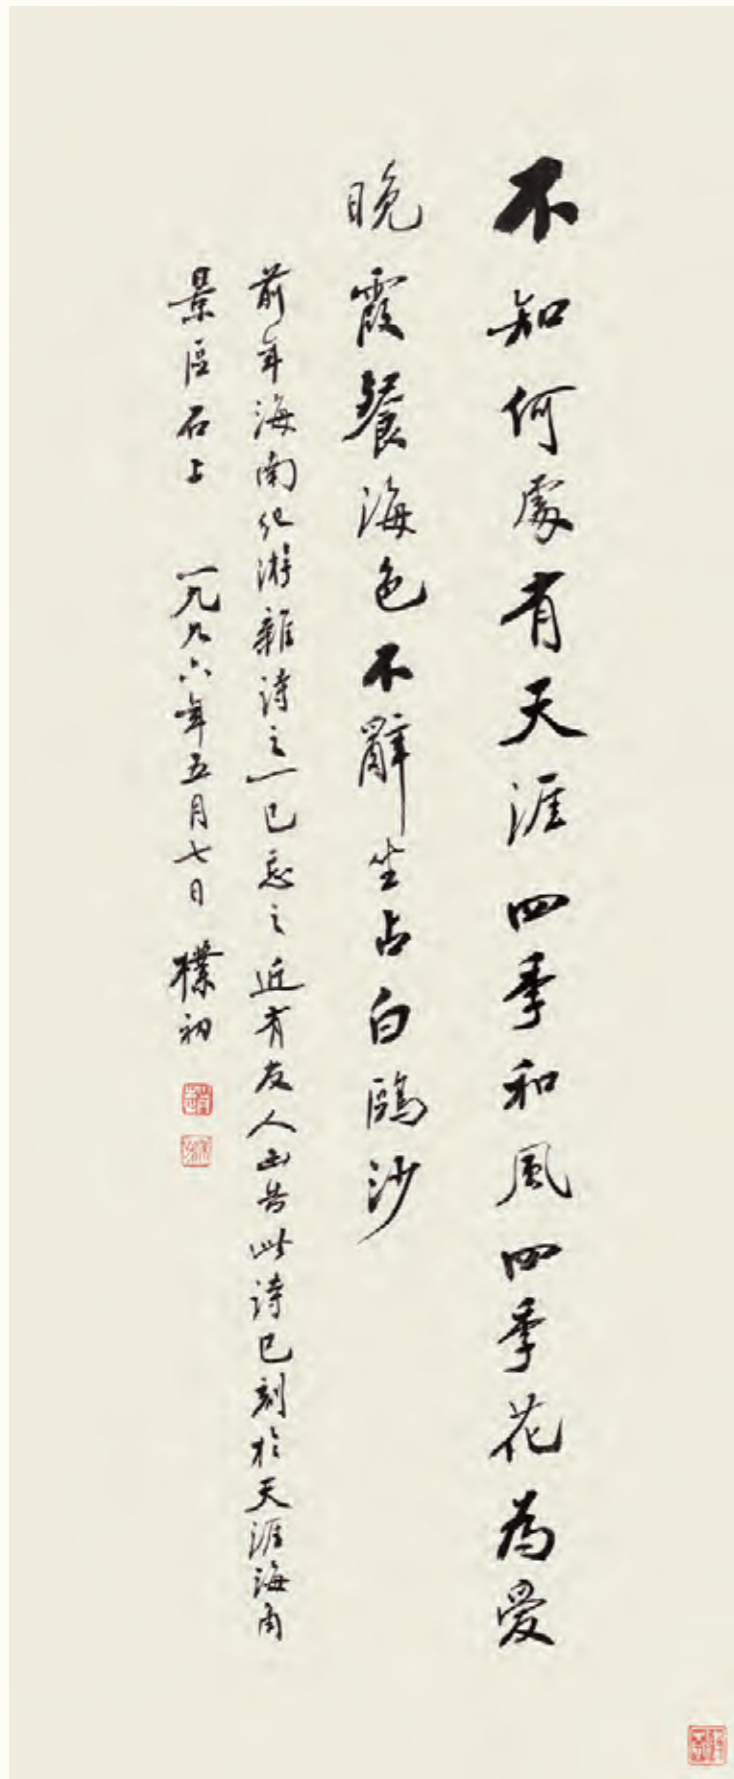 不知何處有天涯四季和風四季花為愛
晚霞餐海色不辭坐占白鷗沙
前年海南紀游雜詩之一已忘之近有友人出告此詩已刻於天涯海角
景區石上 一九九六年五月七日 樸初